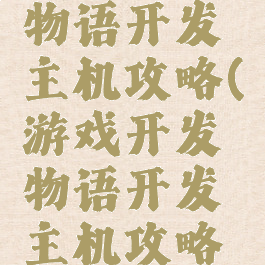 物语开发
主机攻略(
游戏开发
物语开发
主机攻略